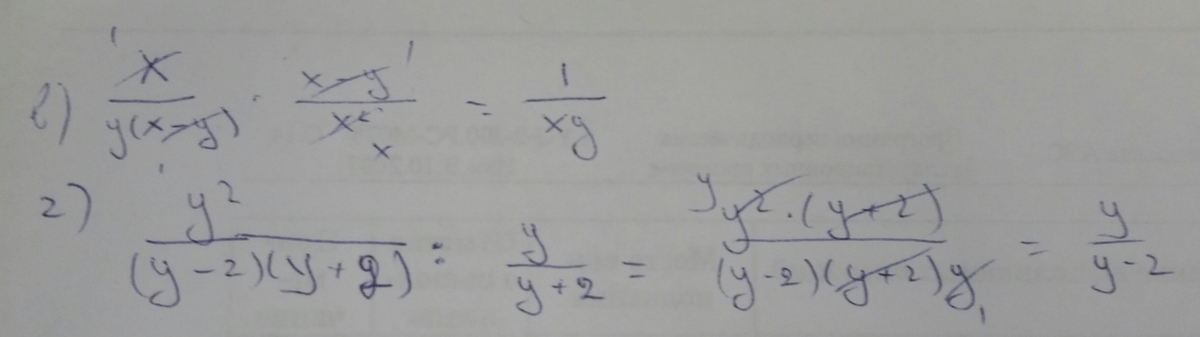 в) x / y(x-y) · x-y / x² = 1 / xy
г) y² / (y-2)(y+2) : y / y+2 = y²·(y+2) / (y-2)(y+2)y = y / y-2